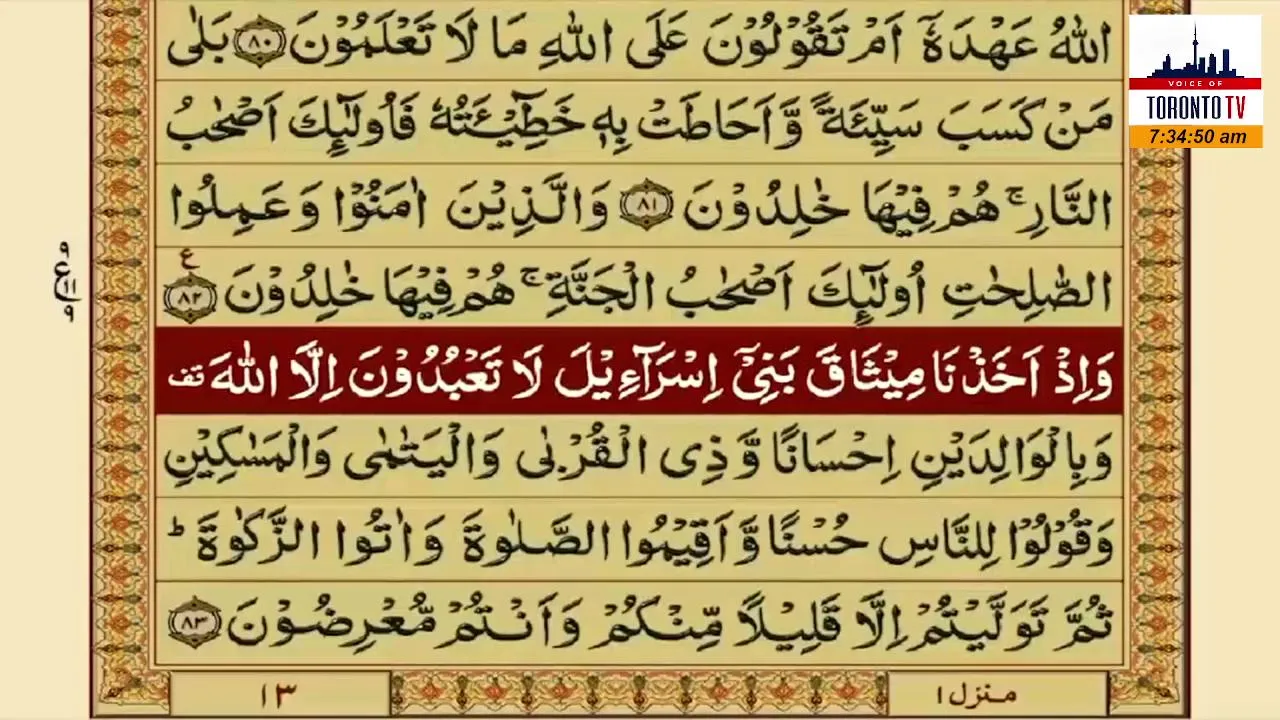 اللّٰهُ عَهْدَهٗۤ اَمْ تَقُوْلُوْنَ عَلَى اللّٰهِ مَا لَا تَعْلَمُوْنَ ﴿۸۰﴾ بَلٰى
مَنْ كَسَبَ سَيِّئَةً وَّاَحَاطَتْ بِهٖ خَطِيْٓـَٔتُهٗ فَاُولٰٓئِكَ اَصْحٰبُ
النَّارِ ۚ هُمْ فِيْهَا خٰلِدُوْنَ ﴿۸۱﴾ وَالَّذِيْنَ اٰمَنُوْا وَعَمِلُوا
الصّٰلِحٰتِ اُولٰٓئِكَ اَصْحٰبُ الْجَنَّةِ ۚ هُمْ فِيْهَا خٰلِدُوْنَ ﴿۸۲﴾ ع
وَاِذْ اَخَذْنَا مِيْثَاقَ بَنِيْٓ اِسْرَآءِيْلَ لَا تَعْبُدُوْنَ اِلَّا اللّٰهَ قف
وَبِالْوَالِدَيْنِ اِحْسَانًا وَّذِى الْقُرْبٰى وَالْيَتٰمٰى وَالْمَسٰكِيْنِ
وَقُوْلُوْا لِلنَّاسِ حُسْنًا وَّاَقِيْمُوا الصَّلٰوةَ وَاٰتُوا الزَّكٰوةَ ؕ
ثُمَّ تَوَلَّيْتُمْ اِلَّا قَلِيْلًا مِّنْكُمْ وَاَنْتُمْ مُّعْرِضُوْنَ ﴿۸۳﴾
منزل ۱
۱۳
ع
۱۱
۹
VOICE OF
TORONTO TV
7:34:50 am